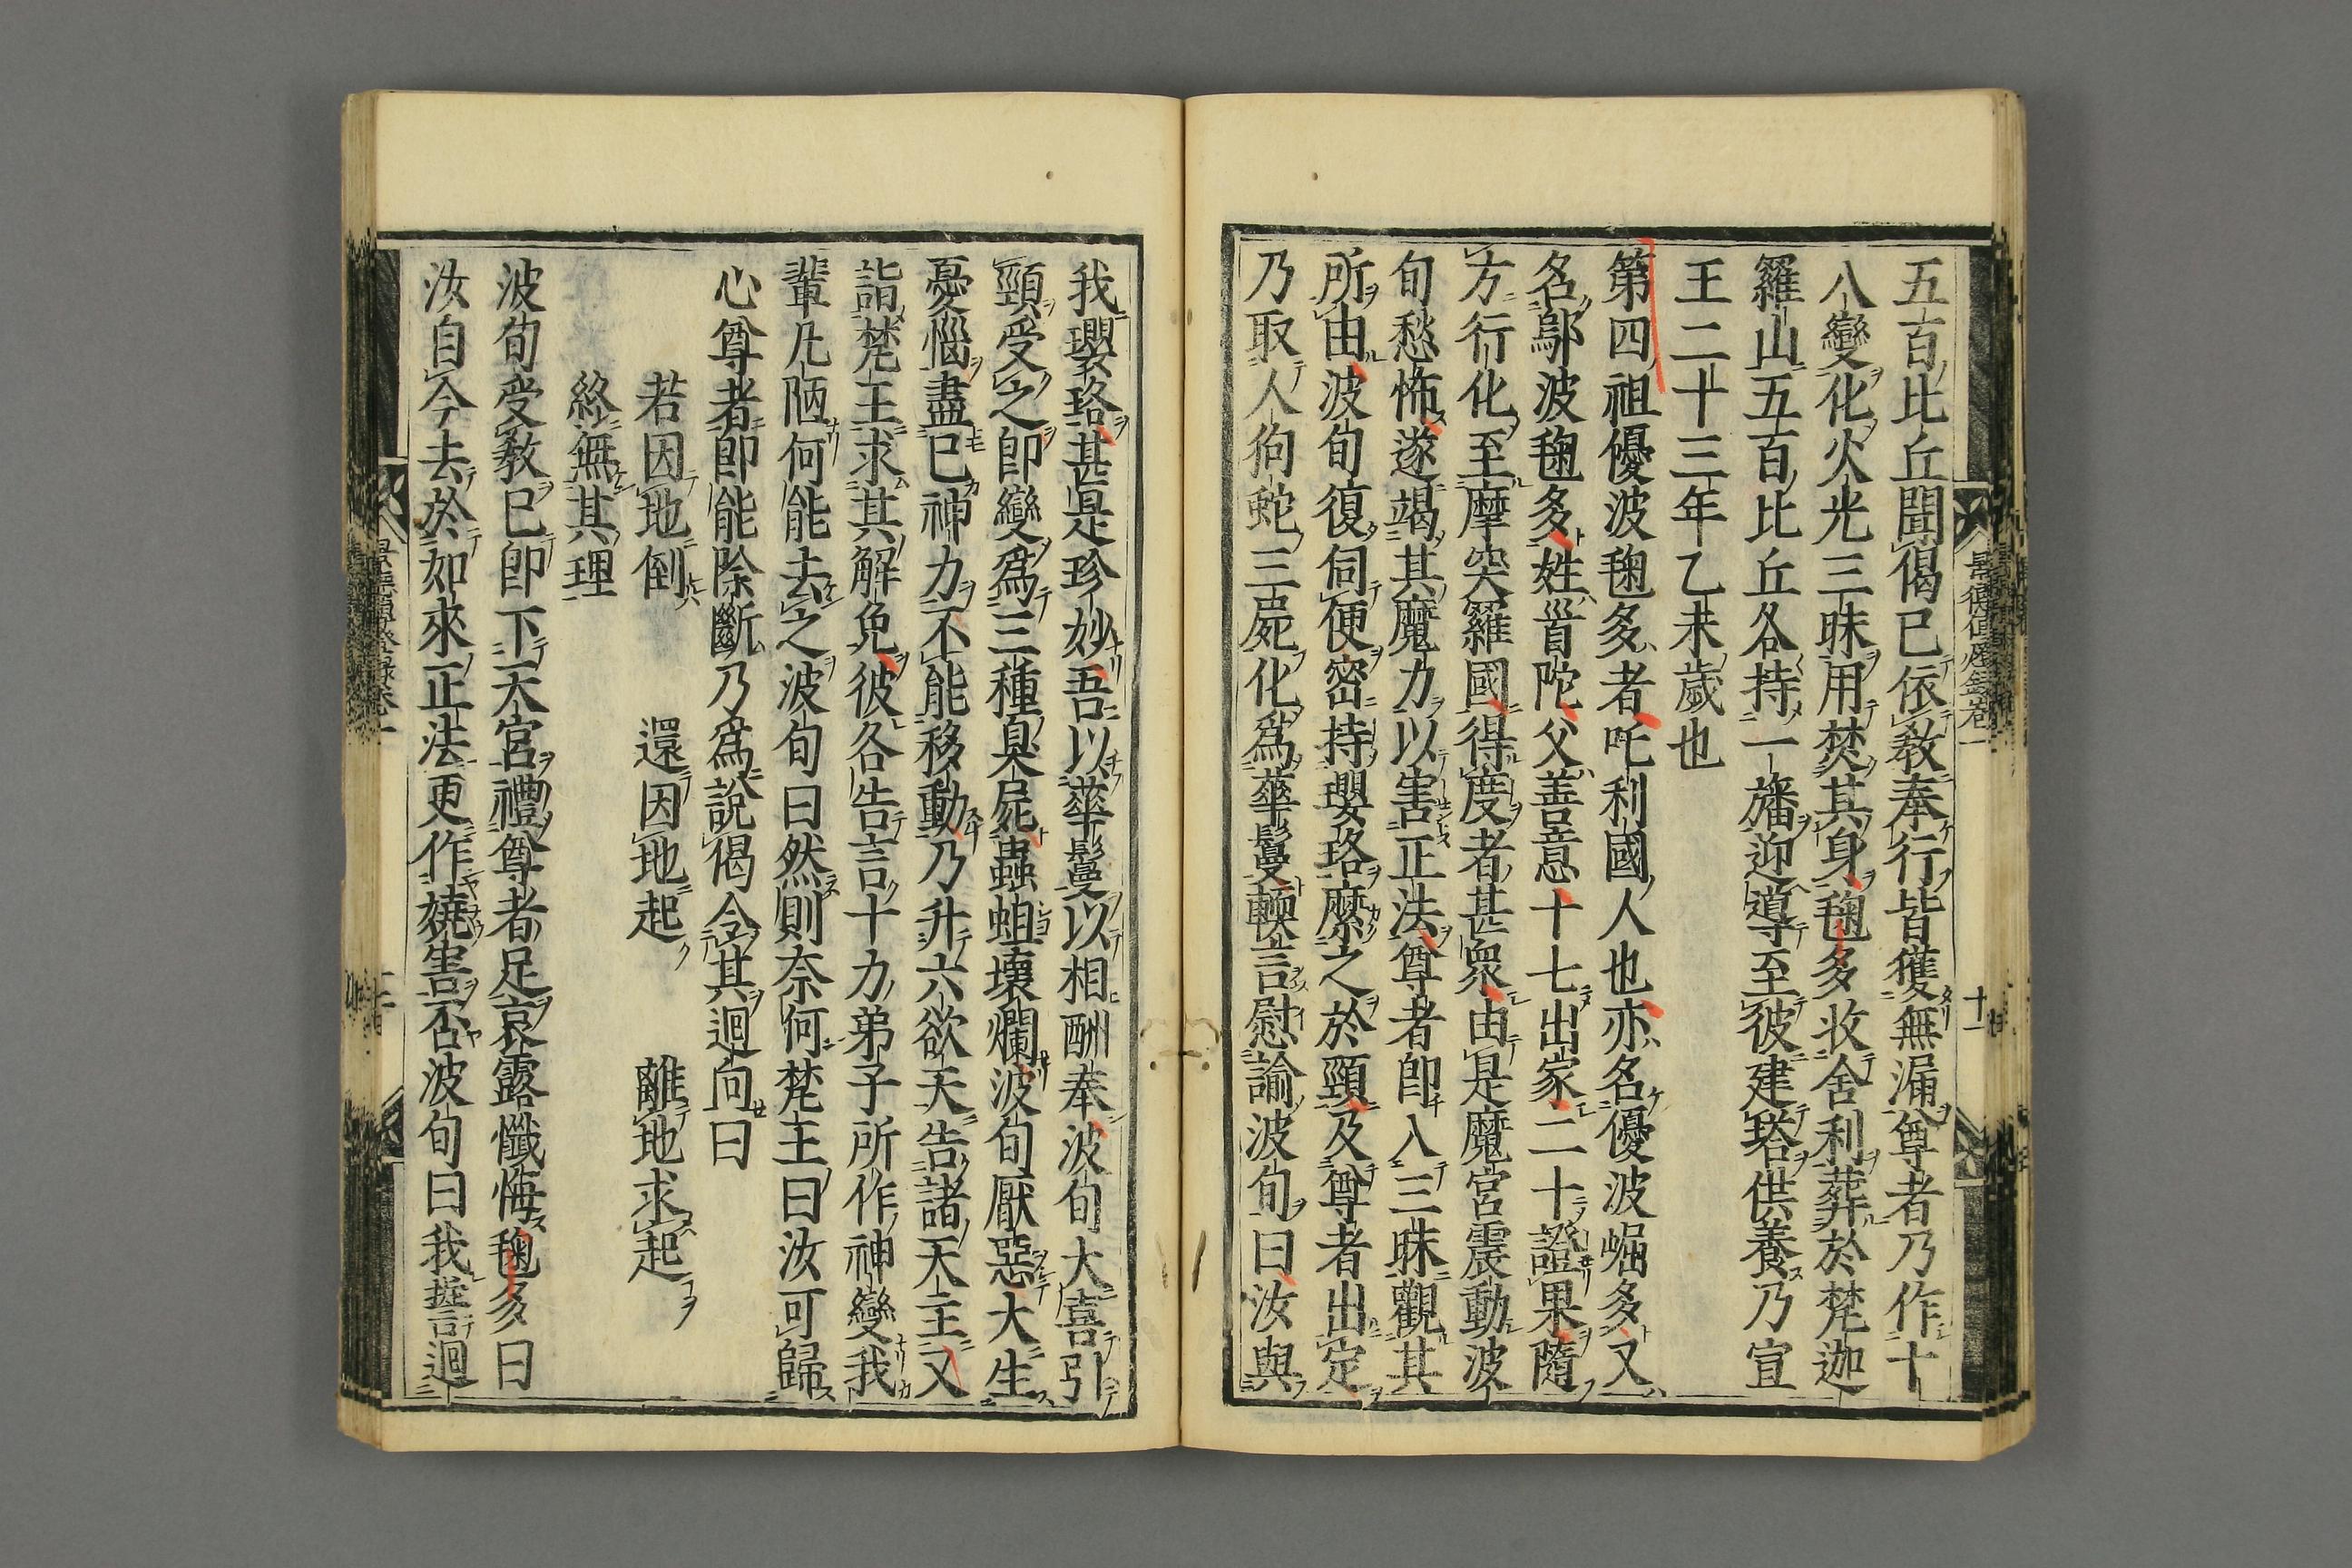 五百比丘聞偈已依教奉行皆獲無漏尊者乃作十
八變化火光三昧用焚其身毱多收舍利葬於梵迦
羅山五百比丘各持一旛迎導至彼建塔供養乃宣
王二十三年乙未歲也
第四祖優波毱多者吒利國人也亦名優波崛多又
名鄔波毱多姓首陀父善意十七出家二十證果隨
方行化至摩突羅國得度者甚衆由是魔宮震動波
旬愁怖遂竭其魔力以害正法尊者卽入三昧觀其
所由波旬復伺便密持瓔珞縻之於頸及尊者出定
乃取人狗蛇三屍化爲華鬘輭言慰諭波旬曰汝與
我瓔珞甚是珍妙吾以華鬘以相酬奉波旬大喜引
頸受之卽變爲三種臭屍蟲蛆壞爛波旬厭惡大生
憂惱盡巳神力不能移動乃升六欲天告諸天主又
詣梵王求其解免彼各告言十力弟子所作神變我
輩凡陋何能去之波旬曰然則奈何梵王曰汝可歸
心尊者卽能除斷乃爲說偈令其迴向曰
若因地倒　還因地起　離地求起
終無其理
波旬受教已卽下天宮禮尊者足哀露懺悔毱多曰
汝自今去於如來正法更作嬈害否波旬曰我誓迴
景德傳燈錄卷一
十一